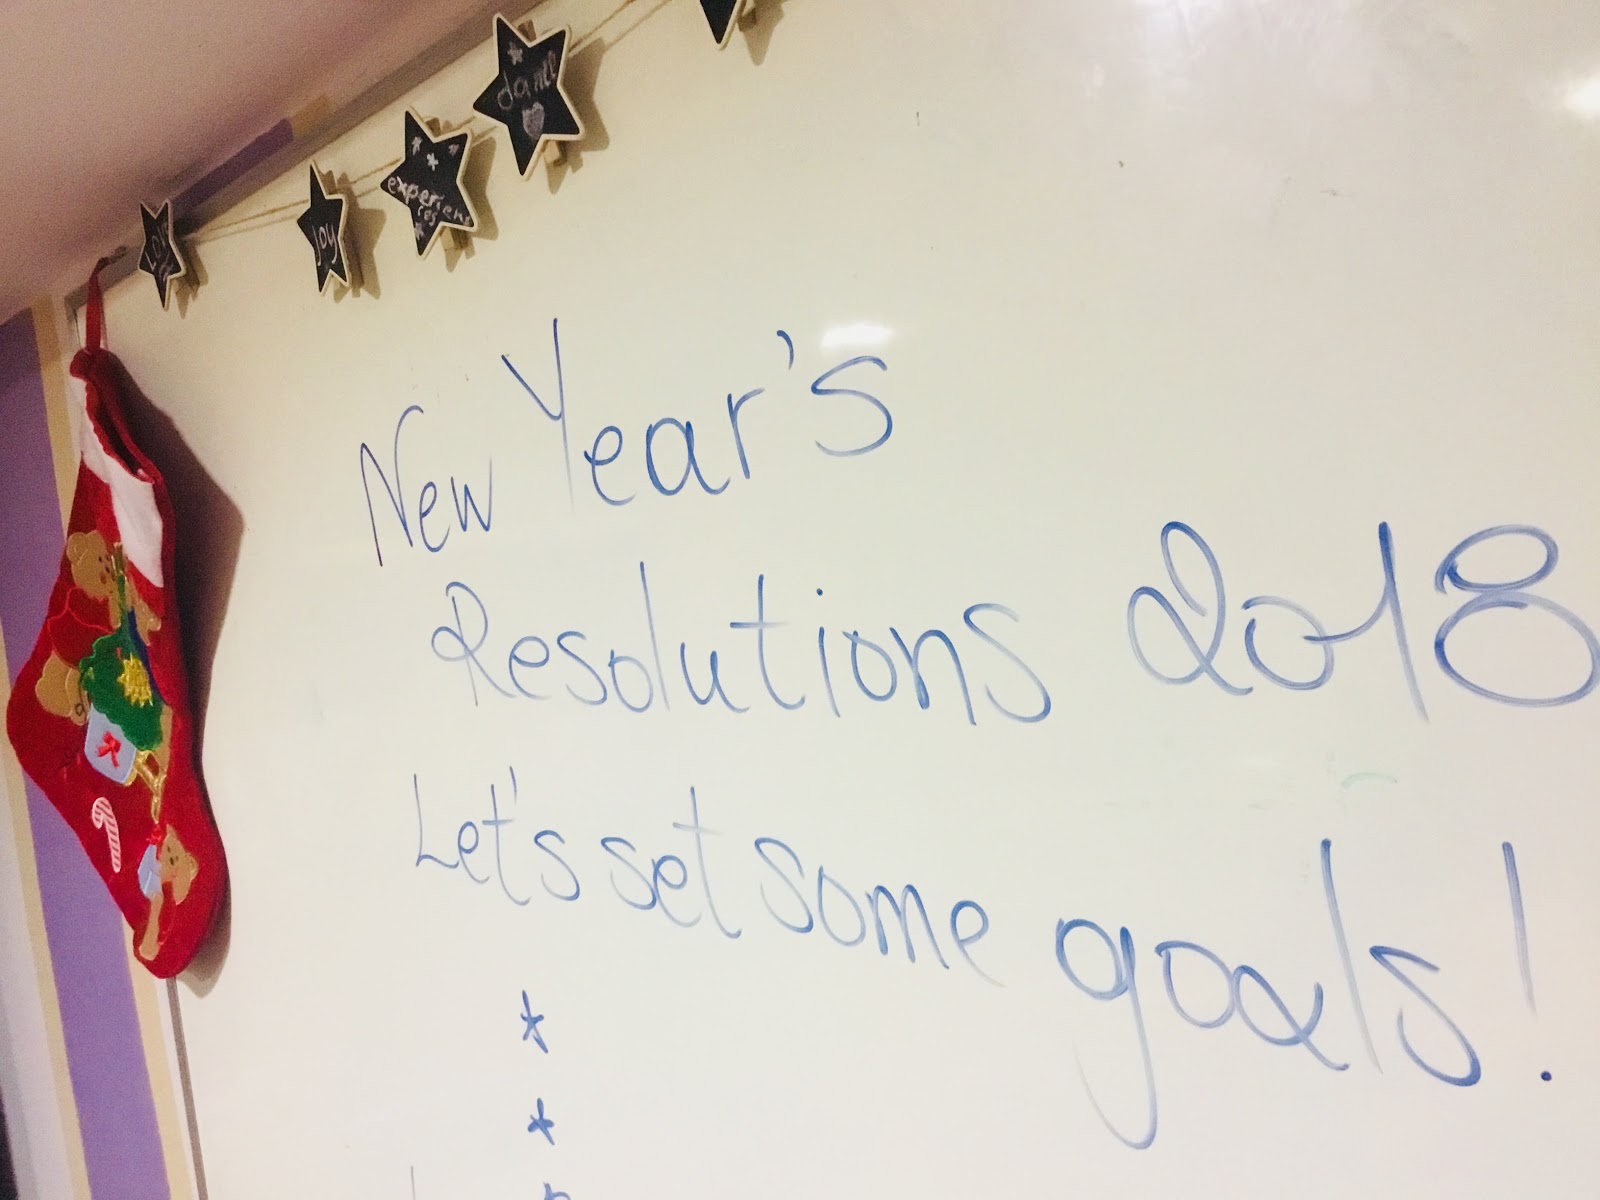 Love
Joy
experien
ces
dance
New Year's
Resolutions 2018
Let's set some goals!